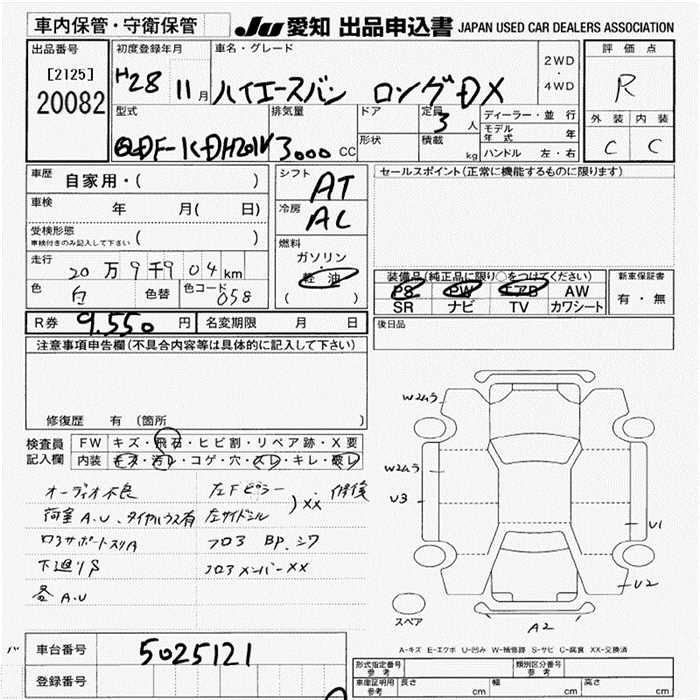 車内保管・守衛保管
JU 愛知 出品申込書 JAPAN USED CAR DEALERS ASSOCIATION
出品番号
[2125]
20082
初度登録年月
H28 11月
車名・グレード
ハイエースバン ロングDX
2WD
・
4WD
評価点
R
外装 内装
C C
型式
QDF-KDH201V
排気量
3000 CC
ドア
形状
定員
3 人
積載
kg
ディーラー・並行
モデル年式 年
ハンドル 左・右
車歴
自家用・( )
車検
年 月( 日)
受検形態
車検付きのみ記入して下さい ( )
走行
20万9千904km
色
白
色替
色コード
058
シフト
AT
冷房
AC
燃料
ガソリン
軽油
( )
セールスポイント(正常に機能するものに限ります)
装備品(純正品に限り○をつけてください)
PS PW エアB AW
SR ナビ TV カワシート
新車保証書
有・無
R券 9.550 円 名変期限 月 日
後日品
注意事項申告欄(不具合内容等は具体的に記入して下さい)
修復歴 有 (箇所 )
検査員
記入欄
FW キズ・飛石・ヒビ割・リペア跡・X要
内装 キズ・汚レ・コゲ・穴・スレ・キレ・破レ
オーディオ不良
荷室A.U、タイヤハウス有
ロアサポートスリA
下廻りS
各A.U
左Fピラー
左サイドシル
)XX 修復
フロア BP.シワ
フロアメンバーXX
W2ムラ
W2ムラ
U3
U1
U2
A2
スペア
A-キズ E-エクボ U-凹み W-補修跡 S-サビ C-腐食 XX-交換済
車台番号 5025121
登録番号
形式指定番号
参考
類別区分番号
参考
車庫証明用
参考
長さ cm 幅 cm 高さ cm